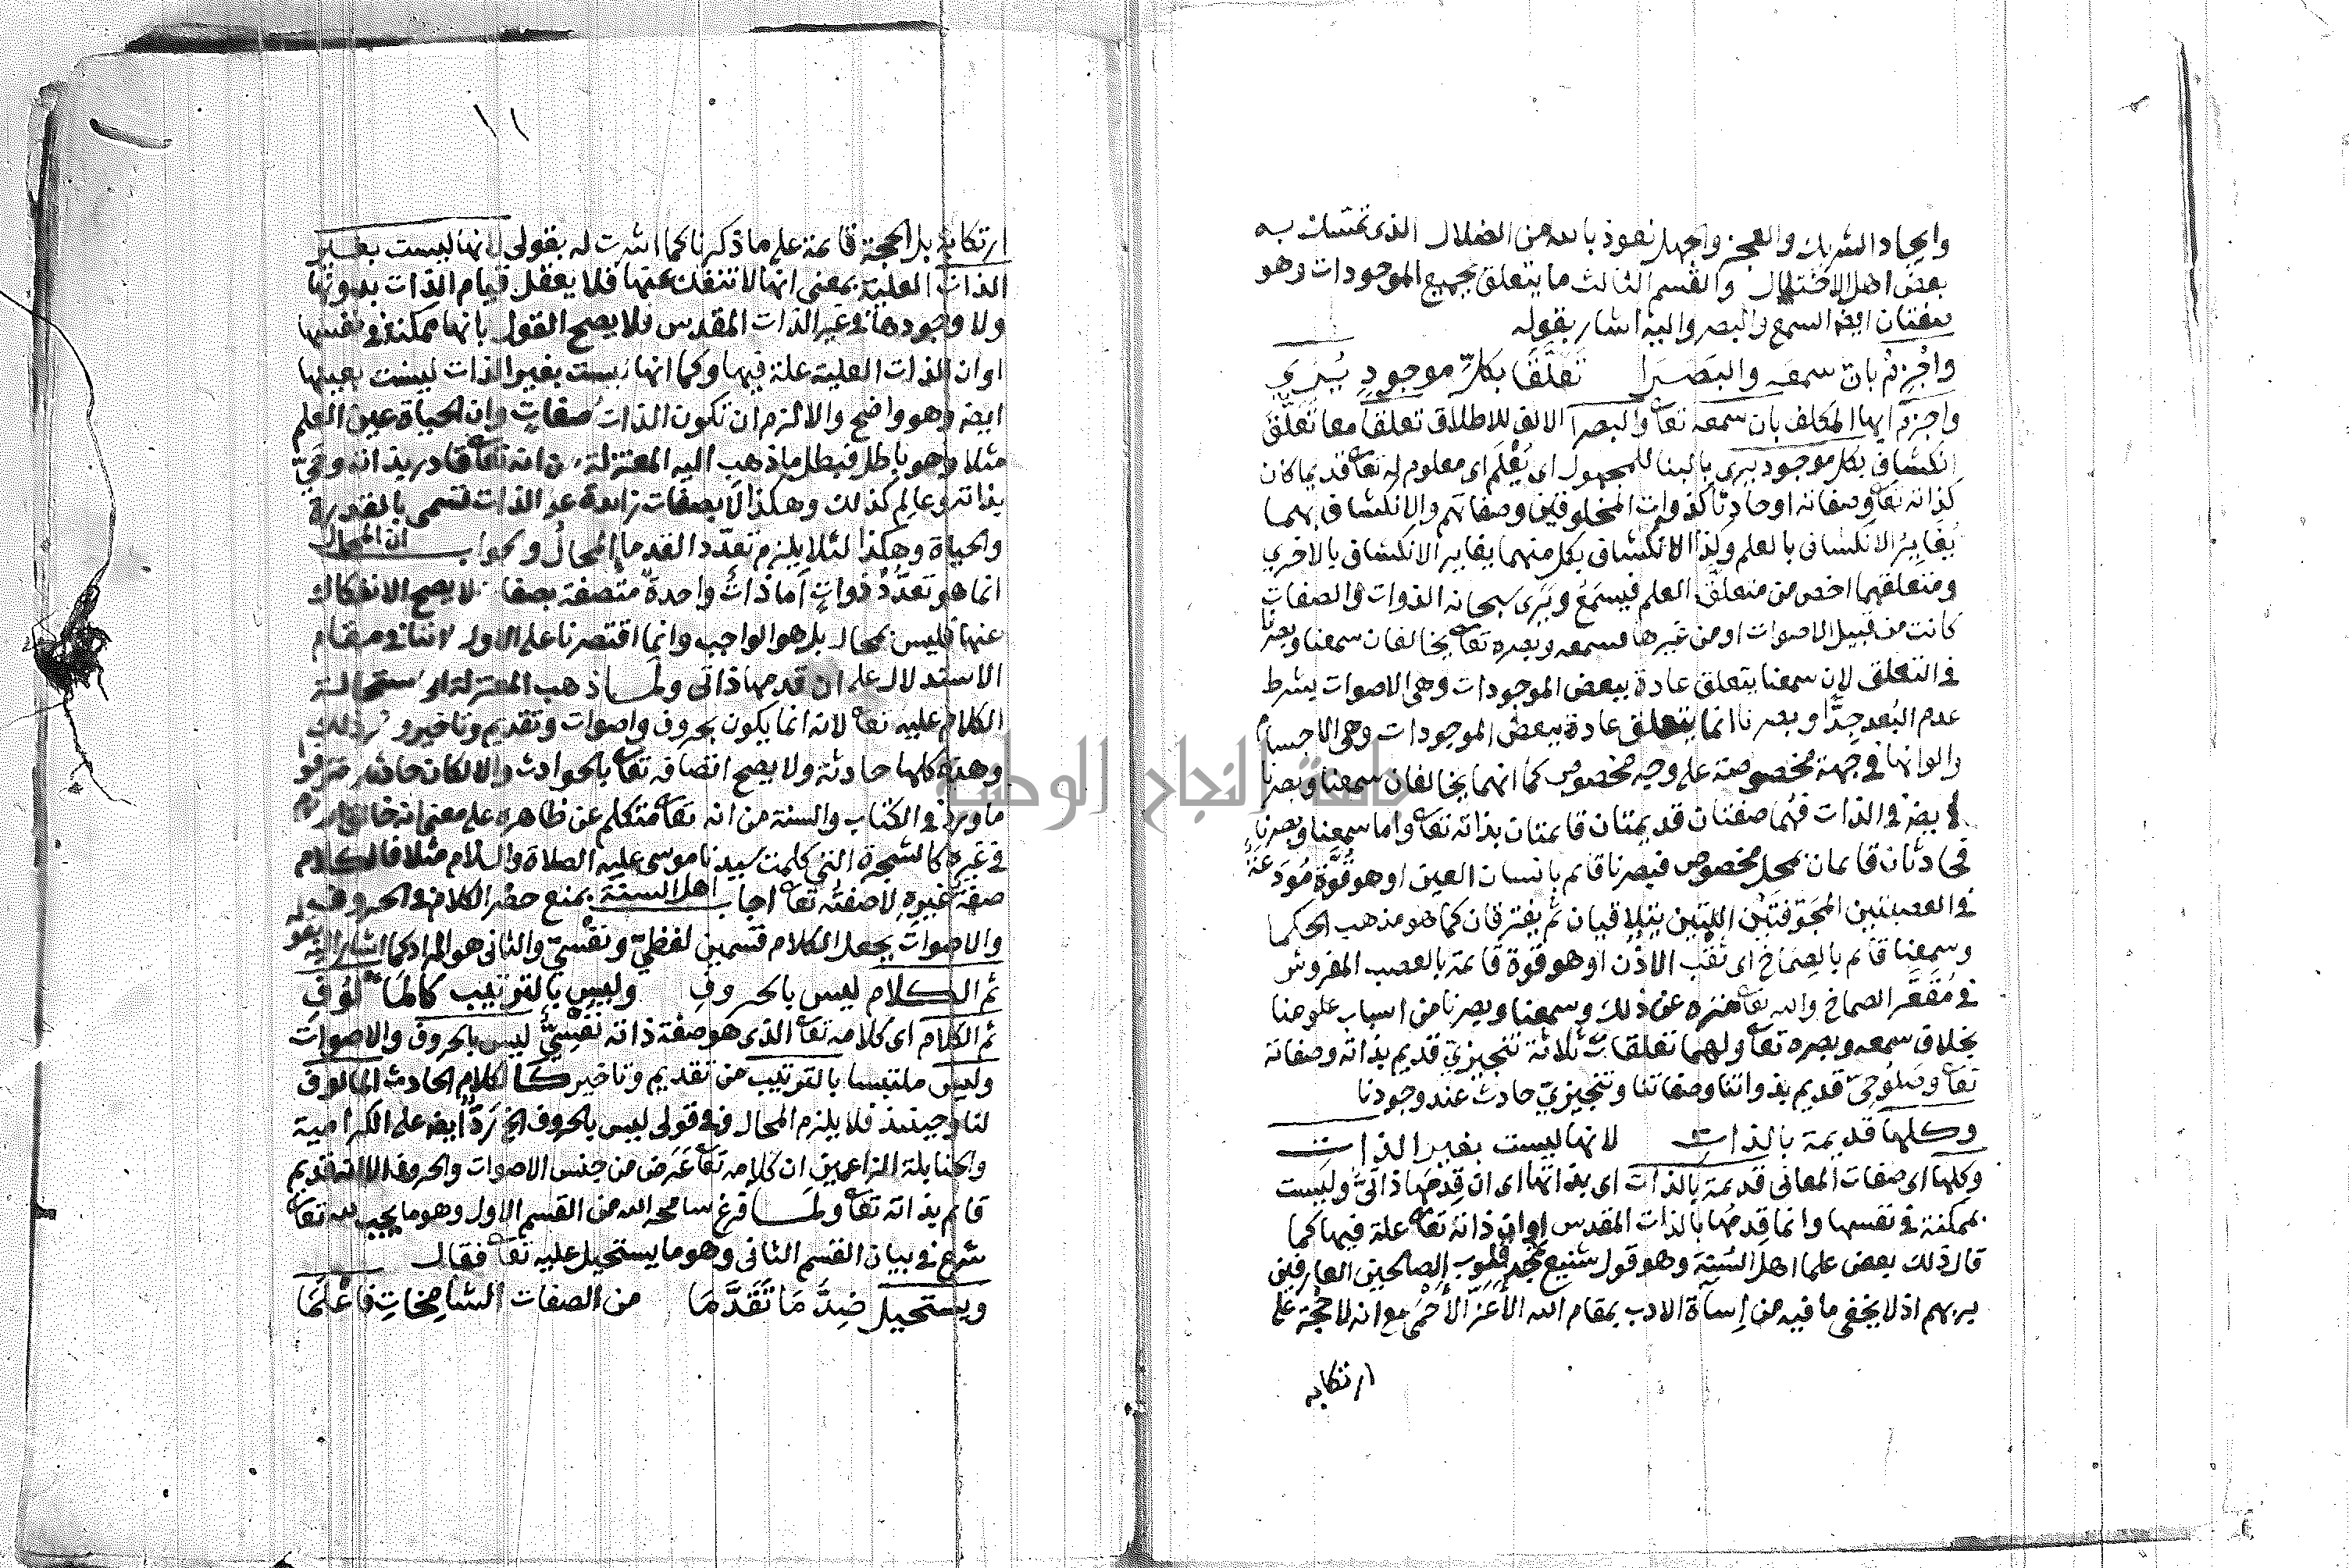 وايجاد الشريك والعجز والجهل نعوذ بالله من الضلال الذى تمسك به
بعض اهل الاختلال والقسم الثالث ما يتعلق بجميع الموجودات وهو
صفتان ايضا السمع والبصر واليه اشار بقوله
واجزم بان سمعه والبصرا تعلقا بكل موجود يرى
واجزم ايها المكلف بان سمعه تعا والبصرا الالف للاطلاق تعلقا معا تعلق
انكشاف بكل موجود يرى بالبنا للمجهول اى يعلم اى معلوم له تعا قديما كان
كذاته تعا وصفاته او حادثا كذوات المخلوقين وصفاتهم والانكشاف بهما
يغاير الانكشاف بالعلم ولذا الانكشاف بكل منهما يغاير الانكشاف بالاخرى
ومتعلقهما اخص من متعلق العلم فيسمع ويرى سبحانه الذوات والصفات
كانت من قبيل الاصوات او من غيرها فسمعه وبصره تعا يخالفان سمعنا وبصرنا
فى التعلق لان سمعنا يتعلق عادة ببعض الموجودات وهى الاصوات بشرط
عدم البعد جدا وبصرنا انما يتعلق عادة ببعض الموجودات وهى الاجسام
والوانها فى جهة مخصوصة على وجه مخصوص كما انهما يخالفان سمعنا وبصرنا
فى الذات فهما صفتان قديمتان قائمتان بذاته تعا واما سمعنا وبصرنا
فحادثان قائمان بمحل مخصوص فبصرنا قائم بانسان العين او هو قوة مودعة
فى العصبتين المجوفتين اللتين يتلاقيان ثم يفترقان كما هو مذهب الحكما
وسمعنا قائم بالصماخ اى ثقب الاذن او هو قوة قائمة بالعصب المفروش
فى مقعر الصماخ والله تعا منزه عن ذلك وسمعنا وبصرنا من اسباب علومنا
بخلاف سمعه وبصره تعا ولهما تعلقات ثلاثة تنجيزى قديم بذاته وصفاته
تعا وصلوحى قديم بذواتنا وصفاتنا وتنجيزى حادث عند وجودنا
وكلها قديمة بالذات لانها ليست بغير الذات
وكلها اى صفات المعانى قديمة بالذات اى بذاتها اى ان قدمها ذاتى وليست
بممكنة فى نفسها وانما قدمها بالذات المقدس او ان ذاته تعا علة فيها كما
قال ذلك بعض علما اهل السنة وهو قول شنيع قلوب الصالحين العارفين
بربهم اذ لا يخفى ما فيه من اساة الادب بمقام الله الاعز الاحمى مع انه لا حجة على
ارتكابه
١١
ارتكابه بل الحجة قائمة على ما ذكرنا كما اشرت له بقولى لانها ليست بغير
الذات العلية بمعنى انها لا تنفك عنها فلا يعقل قيام الذات بدونها
ولا وجودها فى غير الذات المقدس فلا يصح القول بانها ممكنة فى نفسها
او ان الذات العلية علة فيها وكما انها ليست بغير الذات ليست بعينها
ايضا وهو واضح والا لزم ان تكون الذات صفات وان الحياة عين العلم
مثلا وهو باطل فبطل ما ذهب اليه المعتزلة من انه تعا قادر بذاته وحى
بذاته وعالم كذلك وهكذا لا بصفات زائدة على الذات تسمى بالقدرة
والحياة وهكذا لئلا يلزم تعدد القدما المحال والجواب ان المحال
انما هو تعدد ذوات اما ذات واحدة متصفة بصفات لا يصح الانفكاك
عنها فليس بمحال بل هو الواجب وانما اقتصرنا على الاول لاننا فى مقام
الاستدلال على ان قدمها ذاتى ولما ذهب المعتزلة الى استحالة
الكلام عليه تعا لانه انما يكون بحروف واصوات وتقديم وتاخير وغير ذلك
وهذه كلها حادثة ولا يصح اتصافه تعا بالحوادث والا لكان حادثا صرفوا
ما ورد فى الكتاب والسنة من انه تعا متكلم عن ظاهره على معنى انه خالق الكلام
فى غيره كالشجرة التى كلمت سيدنا موسى عليه الصلاة والسلام مثلا فالكلام
صفة غيره لا صفته تعا اجاب اهل السنة بمنع حصر الكلام فى الحروف
والاصوات بجعل الكلام قسمين لفظى ونفسى والثانى هو المراد كما اشار اليه بقوله
ثم الكلام ليس بالحروف وليس بالترتيب كالمالوف
ثم الكلام اى كلامه تعا الذى هو صفة ذاته نفسى ليس بالحروف والاصوات
وليس ملتبسا بالترتيب من تقديم وتاخير كالكلام الحادث المالوف
لنا وحينئذ فلا يلزم المحال وفى قولى ليس بالحروف الخ رد ايضا على الكرامية
والحنابلة الزاعمين ان كلامه تعا عرض من جنس الاصوات والحروف الا انه قديم
قائم بذاته تعا ولما فرغ سامحه الله من القسم الاول وهو ما يجب لله تعا
شرع فى بيان القسم الثانى وهو ما يستحيل عليه تعا فقال
ويستحيل ضد ما تقدما من الصفات الشامخات فاعلما
جامعة النجاح الوطنية